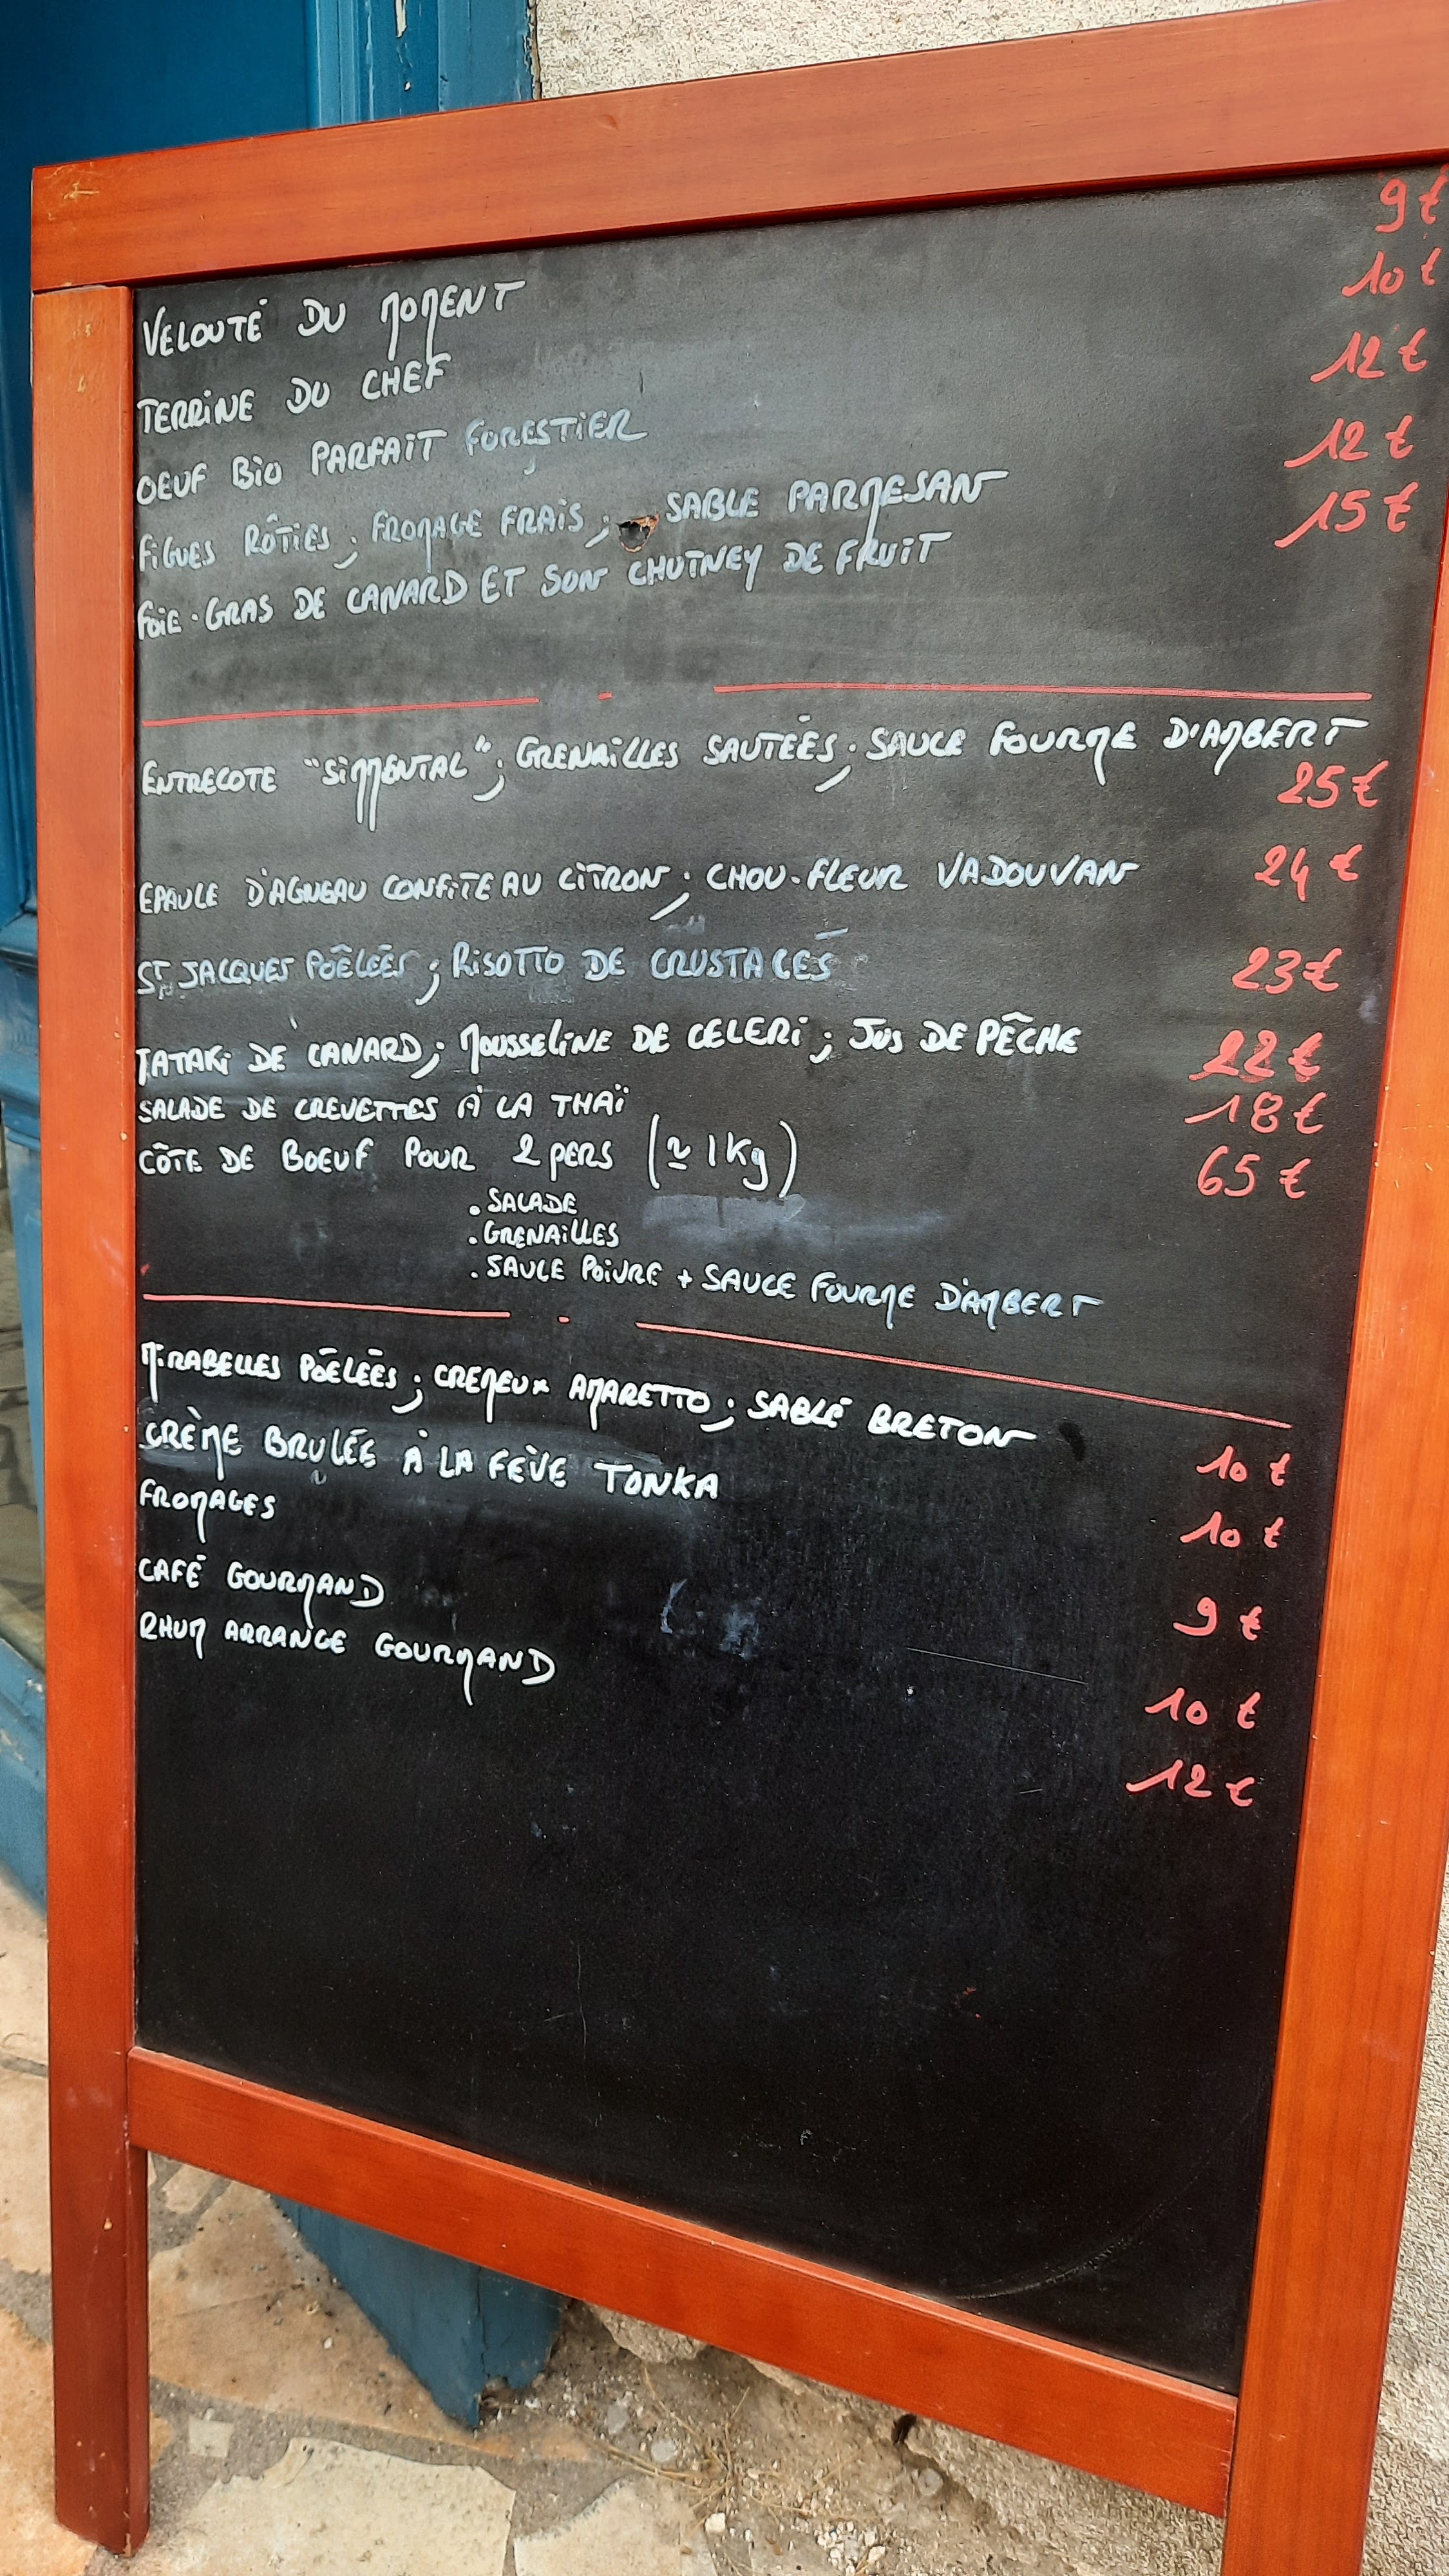 VELOUTÉ DU MOMENT 9€
TERRINE DU CHEF 10€
OEUF BIO PARFAIT FORESTIER 12€
FIGUES RÔTIES ; FROMAGE FRAIS ; SABLE PARMESAN 12€
FOIE-GRAS DE CANARD ET SON CHUTNEY DE FRUIT 15€
ENTRECOTE "SIMMENTAL" ; GRENAILLES SAUTEÉS ; SAUCE FOURME D'AMBERT
25€
EPAULE D'AGNEAU CONFITE AU CITRON ; CHOU-FLEUR VADOUVAN 24€
ST JACQUES POÊLEÉS ; RISOTTO DE CRUSTACÉS 23€
TATAKI DE CANARD ; MOUSSELINE DE CELERI ; JUS DE PÊCHE 22€
SALADE DE CREVETTES À LA THAÏ 18€
CÔTE DE BOEUF POUR 2 PERS (≃ 1Kg) 65€
. SALADE
. GRENAILLES
. SAUCE POIVRE + SAUCE FOURME D'AMBERT
MIRABELLES POÊLÉES ; CREMEUX AMARETTO ; SABLÉ BRETON 10€
CRÈME BRULÉE À LA FÈVE TONKA 10€
FROMAGES 9€
CAFÉ GOURMAND 10€
RHUM ARRANGE GOURMAND 12€